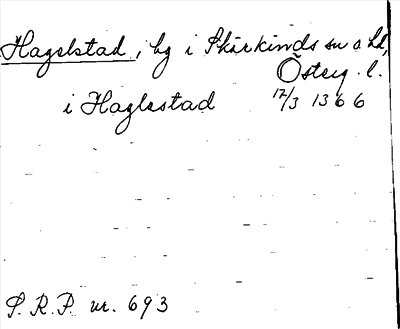 Hagelstad, by i Skärkinds sn o hd,
Österg. l.
i Haglestad 17/3 1366
S. R. P. nr. 693